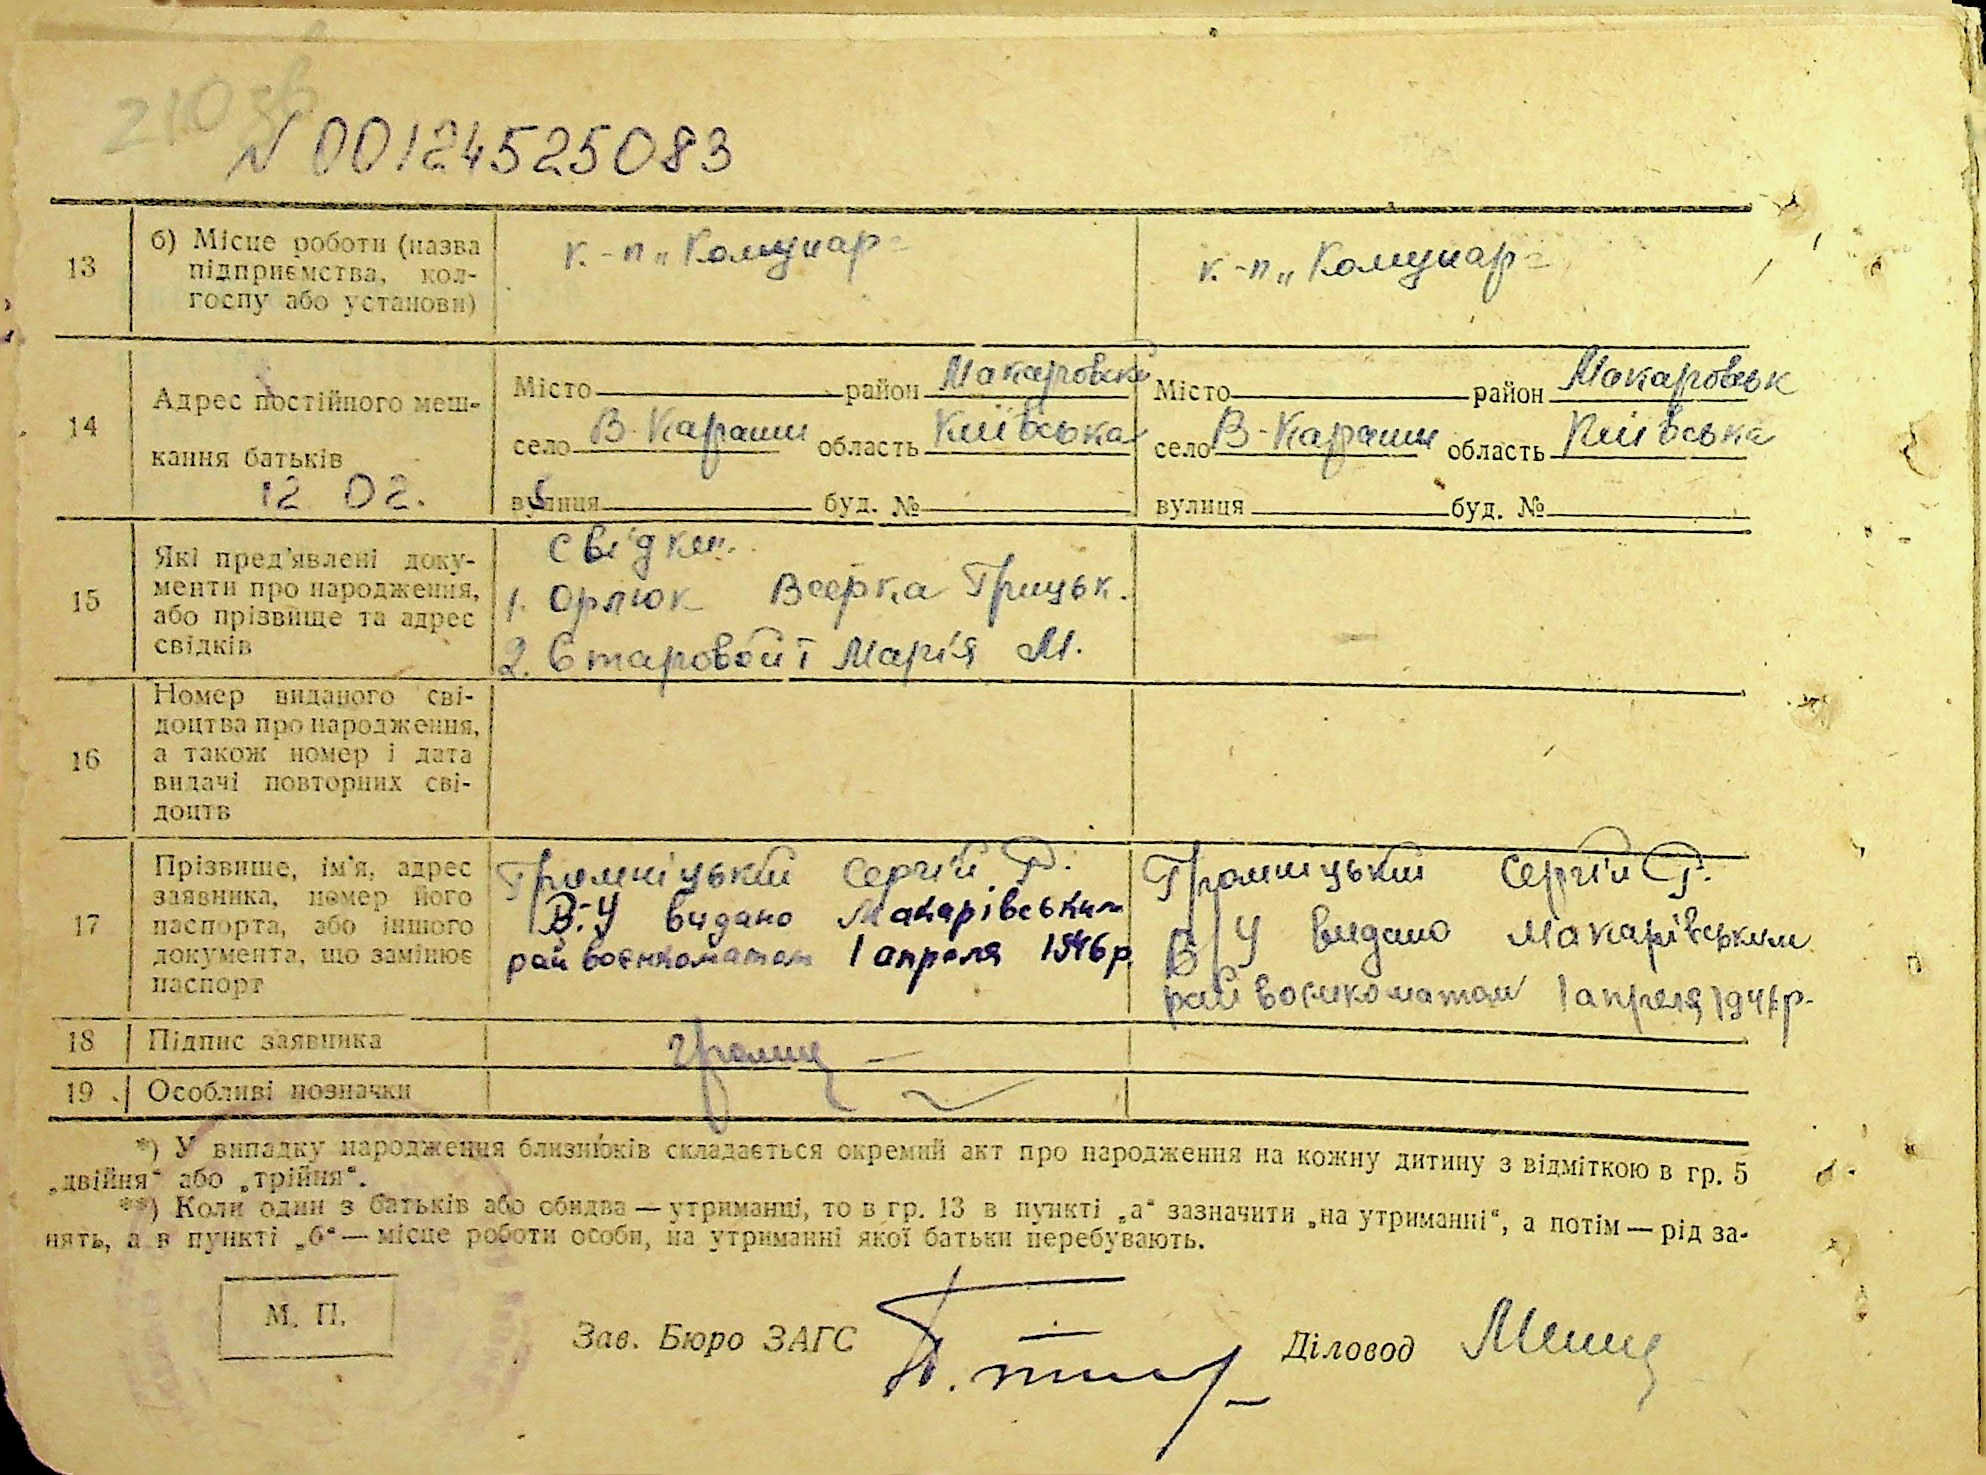 210 зв
N 00124525083
13 б) Місце роботи (назва підприємства, кол-госпу або установи) к.-п „Комунар" к.-п „Комунар"
14 Адрес постійного меш-кання батьків
Місто район Макаровськ Місто район Макаровськ
село В-Караши область Київська село В-Караши область Київська
12 02.
вулиця буд. № вулиця буд. №
15 Які пред'явлені доку-
менти про народження,
або прізвище та адрес
свідків
свідки
1. Орлюк Грицьк.
2. Старовойт Марія М.
16 Номер виданого сві-
доцтва про народження,
а також номер і дата
видачі повторних сві-
доцтв
17 Прізвище, ім'я, адрес
заявника, номер його
паспорта, або іншого
документа, що замінює
паспорт
Громніцький Сергій Г.
В-У видано Макарівським
райвоєнкоматом 1 апреля 1946р.
Громницький Сергій Г.
В/У видано Макарівським
райвоєнкоматом 1 апреля
18 Підпис заявника Громиц
19 Особливі позначки
*) У випадку народження близнюків складається окремий акт про народження на кожну дитину з відміткою в гр. 5
„двійня" або „трійня".
**) Коли один з батьків або обидва — утриманці, то в гр. 13 в пункті „а" зазначити „на утриманні", а потім — рід за-
нять, а в пункті „б" — місце роботи особи, на утриманні якої батьки перебувають.
М. П.
Зав. Бюро ЗАГС Діловод